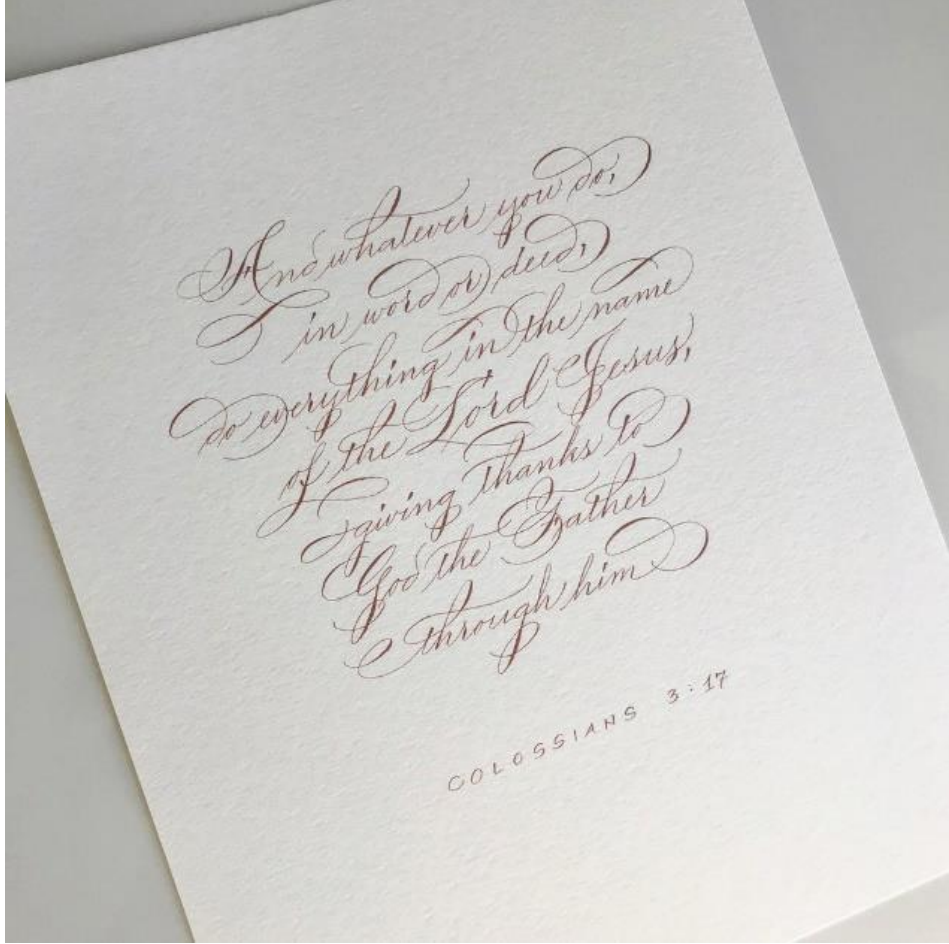 And whatever you do,
in word or deed,
do everything in the name
of the Lord Jesus,
giving thanks to
God the Father
through him
COLOSSIANS 3:17